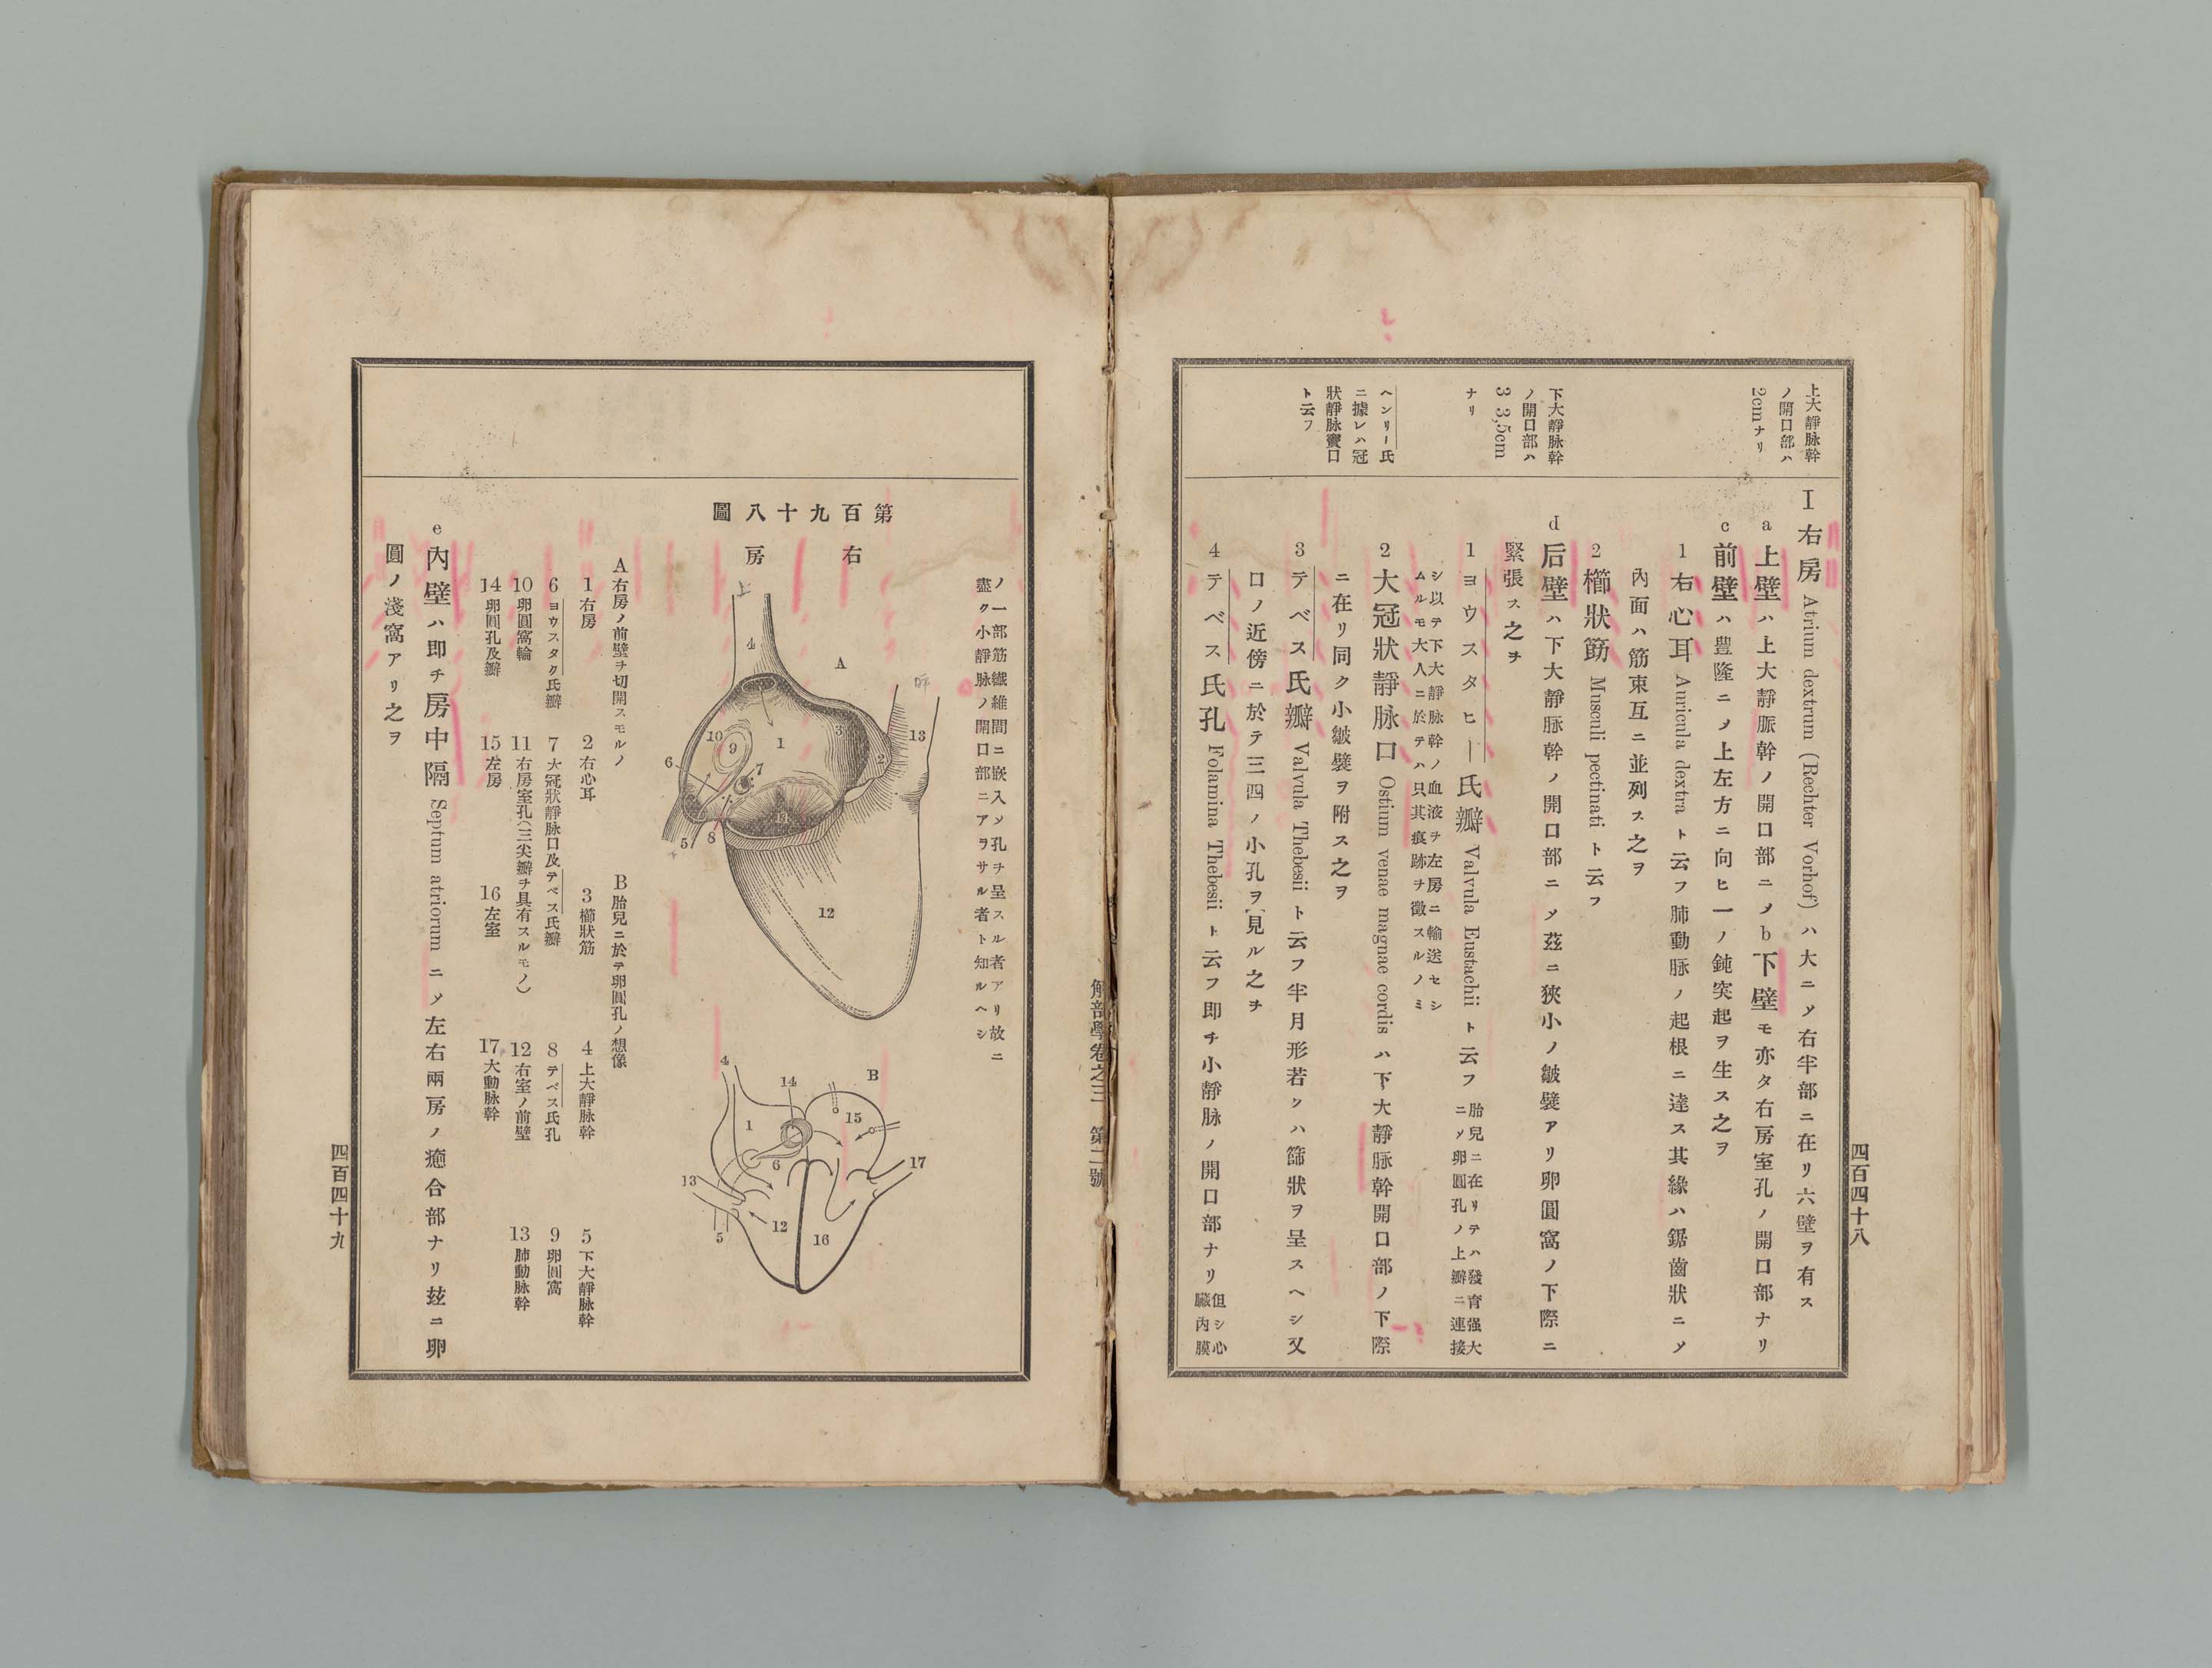 四百四十八
上大靜脉幹
ノ開口部ハ
2cmナリ
下大靜脉幹
ノ開口部ハ
3 3,5cm
ナリ
ヘンリー氏
ニ據レハ冠
狀靜脉竇口
ト云フ
I 右房 Atrium dextrum (Rechter Vorhof) ハ大ニㇱテ右半部ニ在リ六壁ヲ有ス
a 上壁ハ上大靜脈幹ノ開口部ニㇱテ b 下壁モ亦タ右房室孔ノ開口部ナリ
c 前壁ハ豊隆ニㇱテ上左方ニ向ヒ一ノ鈍突起ヲ生ス之ヲ
1 右心耳 Auricula dextra ト云フ肺動脉ノ起根ニ達ス其緣ハ鋸齒狀ニㇱテ
內面ハ筋束互ニ並列ス之ヲ
2 櫛狀筯 Musculi pectinati ト云フ
d 后壁ハ下大靜脈幹ノ開口部ニㇱテ茲ニ狹小ノ皺襞アリ卵圓窩ノ下際ニ
緊張ス之ヲ
1 ヨウスタヒー氏瓣 Valvula Eustachii ト云フ 胎兒ニ在リテハ發育强大
ニㇱテ卵圓孔ノ上瓣ニ連接
シ以テ下大靜脉幹ノ血液ヲ左房ニ輸送セシ
ムルモ大人ニ於テハ只其痕跡ヲ徵スルノミ
2 大冠狀靜脉口 Ostium venae magnae cordis ハ下大靜脉幹開口部ノ下際
ニ在リ同ク小皺襞ヲ附ス之ヲ
3 テベス氏瓣 Valvula Thebesii ト云フ半月形若クハ篩狀ヲ呈スヘシ又
口ノ近傍ニ於テ三四ノ小孔ヲ見ル之ヲ
4 テベス氏孔 Folamina Thebesii ト云フ即チ小靜脉ノ開口部ナリ 但シ心
臟內膜
解剖學卷之三 第二號
ノ一部筋纖維間ニ嵌入ㇱテ孔ヲ呈スル者アリ故ニ
盡ク小靜脉ノ開口部ニアラサル者ト知ルヘシ
第百九十八圖
右房
上
4
A
1
2
3
13
10
9
7
6
5
8
11
12
B
4
14
15
1
6
13
17
12
5
16
A 右房ノ前壁ヲ切開スモルノ
B 胎兒ニ於テ卵圓孔ノ想像
1 右房 2 右心耳 3 櫛狀筋 4 上大靜脉幹 5 下大靜脉幹
6 ヨウスタク氏瓣 7 大冠狀靜脉口及テベス氏瓣 8 テベス氏孔 9 卵圓窩
10 卵圓窩輪 11 右房室孔(三尖瓣ヲ具有スルモノ) 12 右室ノ前壁 13 肺動脉幹
14 卵圓孔及瓣 15 左房 16 左室 17 大動脉幹
e 內壁ハ即チ房中隔 Septum atriorum ニㇱテ左右兩房ノ癒合部ナリ玆ニ卵
圓ノ淺窩アリ之ヲ
四百四十九